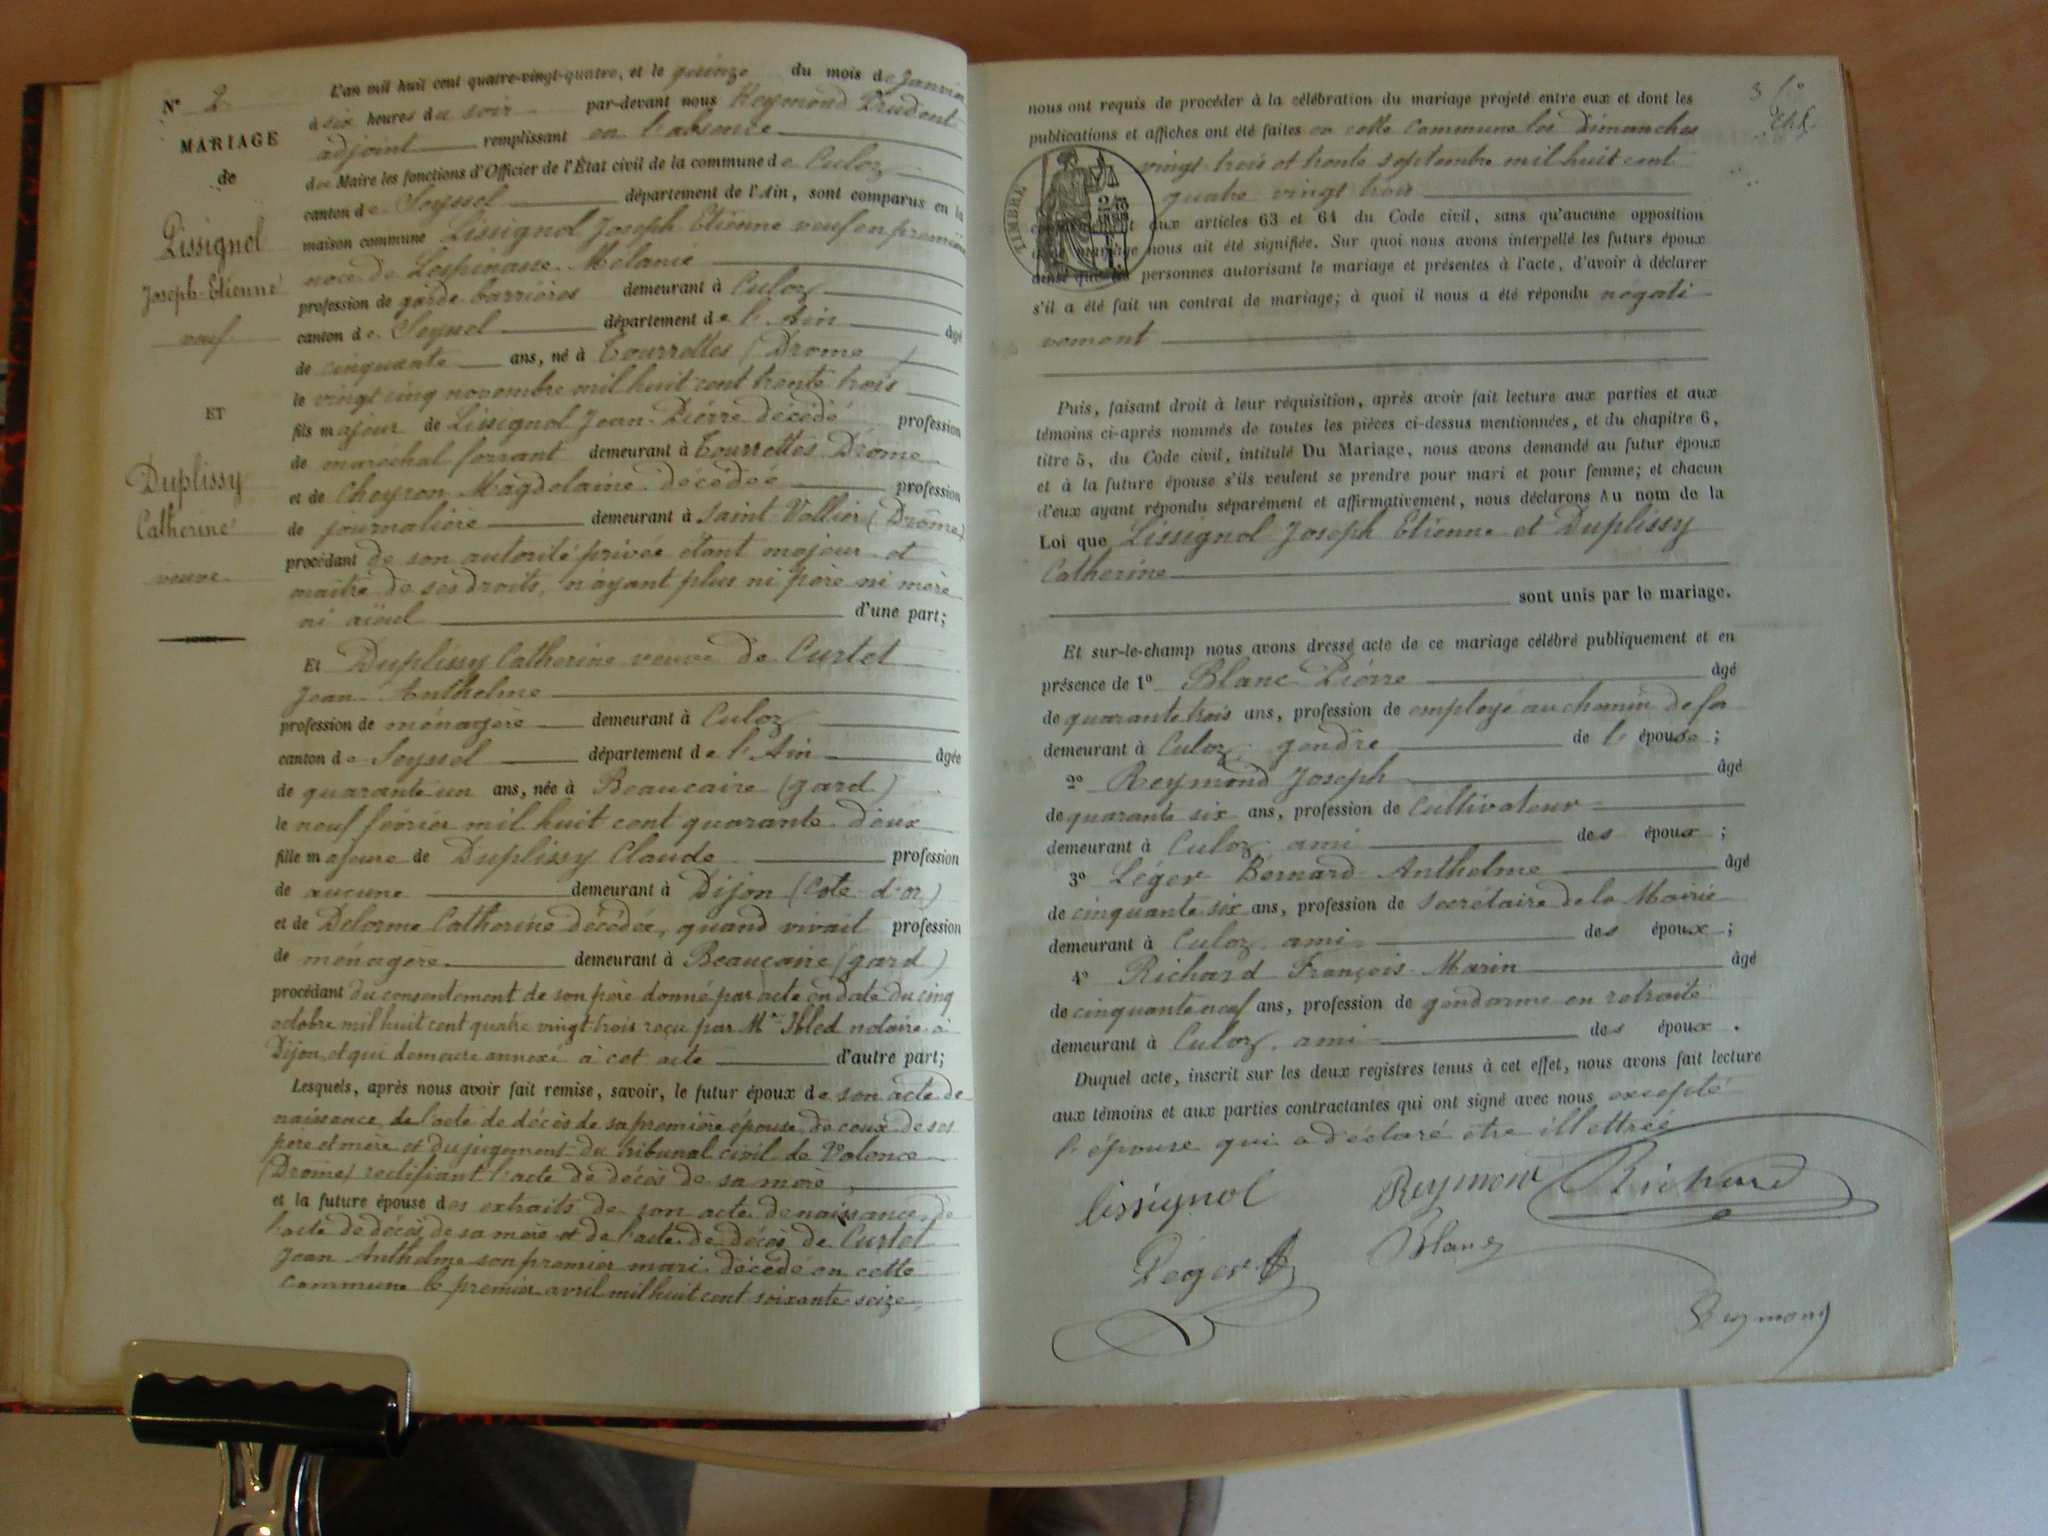 N° 2
MARIAGE
de
Lissignol
Joseph-Etienne
veuf
ET
Duplissy
Catherine
veuve
L'an mil huit cent quatre-vingt-quatre, et le quinze du mois de Janvier
à six heures du soir par-devant nous Reymond Prudent
adjoint remplissant en l'absence
du Maire les fonctions d'Officier de l'État civil de la commune de Culoz
canton de Seyssel département de l'Ain, sont comparus en la
maison commune Lissignol Joseph Etienne veuf en première
noce de Lespinasse Mélanie
profession de garde barrières demeurant à Culoz
canton de Seyssel département de l'Ain âgé
de cinquante ans, né à Tourrettes (Drome)
le vingt cinq novembre mil huit cent trente trois
fils majeur de Lissignol Jean-Pierre décédé profession
de marechal ferrant demeurant à Tourrettes Drôme
et de Cheyron Magdelaine décédée profession
de journalière demeurant à Saint-Vallier (Drôme)
procédant de son autorité privée étant majeur et
maitre de ses droits, n'ayant plus ni père ni mère
ni aïeul d'une part;
Et Duplissy Catherine veuve de Curtet
Jean-Anthelme
profession de ménagère demeurant à Culoz
canton de Seyssel département de l'Ain âgée
de quarante un ans, née à Beaucaire (gard)
le neuf février mil huit cent quarante deux
fille majeure de Duplissy Claude profession
de aucune demeurant à Dijon (Cote-d'or)
et de Delorme Catherine décédée, quand vivait profession
de ménagère demeurant à Beaucaire (gard)
procédant du consentement de son père donné par acte en date du cinq
octobre mil huit cent quatre vingt trois reçu par Me notaire à
Dijon, et qui demeure annexé à cet acte d'autre part;
Lesquels, après nous avoir fait remise, savoir, le futur époux de son acte de
naissance, de l'acte de décès de sa première épouse, de ceux de ses
père et mère et du jugement du tribunal civil de Valence
(Drome) rectifiant l'acte de décès de sa mère
et la future épouse des extraits de son acte de naissance, de
l'acte de décès de sa mère et de l'acte de décès de Curtet
Jean Anthelme son premier mari décédé en cette
commune le premier avril mil huit cent soixante seize
nous ont requis de procéder à la célébration du mariage projeté entre eux et dont les
publications et affiches ont été faites en cette commune les Dimanches
vingt trois et trente septembre mil huit cent
quatre vingt trois
TIMBRE
aux articles 63 et 64 du Code civil, sans qu'aucune opposition
mariage nous ait été signifiée. Sur quoi nous avons interpellé les futurs époux
ainsi que les personnes autorisant le mariage et présentes à l'acte, d'avoir à déclarer
s'il a été fait un contrat de mariage; à quoi il nous a été répondu négati
vement
Puis, faisant droit à leur réquisition, après avoir fait lecture aux parties et aux
témoins ci-après nommés de toutes les pièces ci-dessus mentionnées, et du chapitre 6,
titre 5, du Code civil, intitulé Du Mariage, nous avons demandé au futur époux
et à la future épouse s'ils veulent se prendre pour mari et pour femme; et chacun
d'eux ayant répondu séparément et affirmativement, nous déclarons Au nom de la
Loi que Lissignol Joseph Etienne et Duplissy
Catherine
sont unis par le mariage.
Et sur-le-champ nous avons dressé acte de ce mariage célébré publiquement et en
présence de 1° Blanc Pierre âgé
de quarante trois ans, profession de employé au chemin de fer
demeurant à Culoz gendre de l'épouse;
2° Reymond Joseph âgé
de quarante six ans, profession de Cultivateur
demeurant à Culoz ami des époux;
3° Léger Bernard Anthelme âgé
de cinquante six ans, profession de secrétaire de la Mairie
demeurant à Culoz ami des époux;
4° Richard François Marin âgé
de cinquante neuf ans, profession de gendarme en retraite
demeurant à Culoz ami des époux.
Duquel acte, inscrit sur les deux registres tenus à cet effet, nous avons fait lecture
aux témoins et aux parties contractantes qui ont signé avec nous excepté
l'épouse qui a déclaré être illettrée
lissignol Reymond Richard
Léger Blanc
Reymond